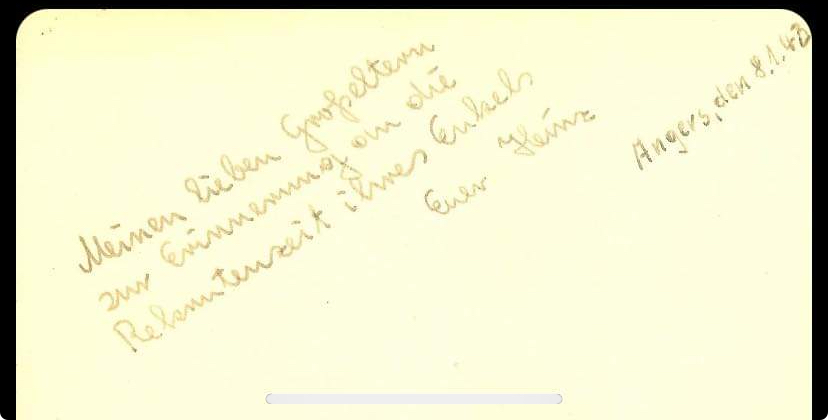 Meinen lieben Großeltern
zur Erinnerung an die
Rekrutenzeit ihres Enkels
Euer Heinz
Angers, den 8.1.43